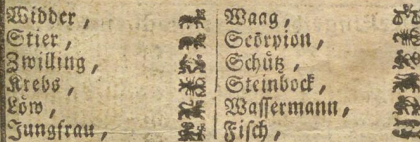 Widder,
Stier,
Zwilling,
Krebs,
Löw,
Jungfrau,
Waag,
Scorpion,
Schütz,
Steinbock,
Wassermann,
Fisch,